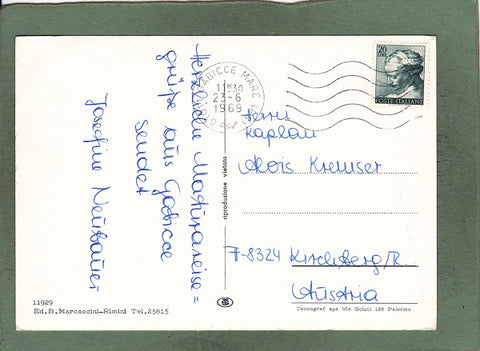 Herzliche Maturareise=
grüße aus Gabicce
sendet
Josefine Neubauer
GABICCE MARE
11 30
23-6
1969
20
POSTE ITALIANE
Herrn
Kaplan
Alois Kremser
A-8324 Kirchberg/R.
Austria
riproduzione vietata
11929
Ed.B.Marcaccini-Rimini Tel.25815
Tecnograf spa Via Sciuti 128 Palermo